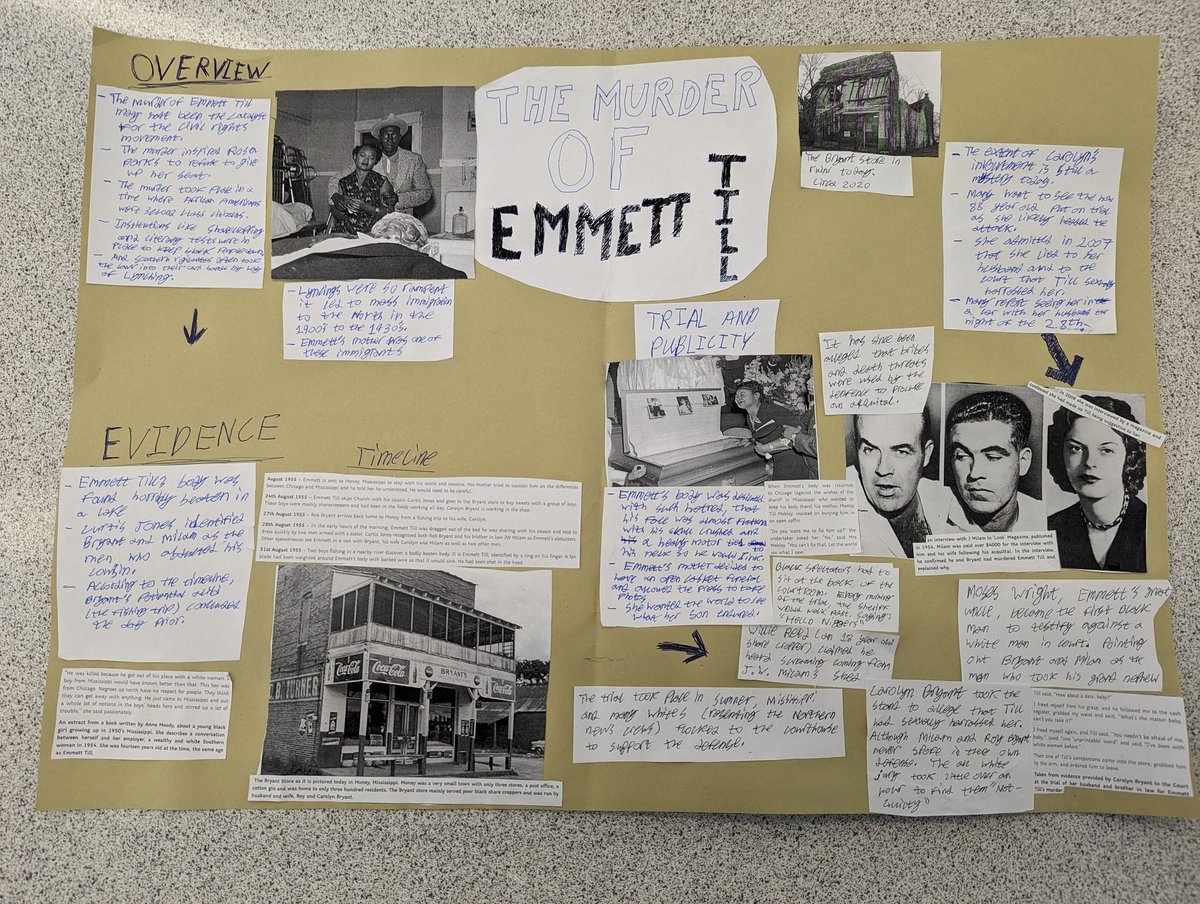 OVERVIEW
- The murder of Emmett Till
may have been the catalyst
for the civil rights
movement.
- The murder inspired Rosa
Parks to refuse to give
up her seat.
- The murder took place in a
time where African Americans
were second class citizens.
- Institutions like sharecropping
and literacy tests were in
place to keep black people down
- And southern vigilantes often took
the law into their own hands by way
of Lynching.
- Lynchings were so rampent
it led to mass immigration
to the North in the
1900's to the 1930's.
- Emmett's mother was one of
these immigrants
THE MURDER
OF
EMMETT
TILL
The Bryant Store in
ruins today.
Circa 2020
- The extent of Carolyn's
involvement is still a
mystery today.
- Many want to see the now
88 year old put on trial
as she likely
attack.
- She admitted in 2007
that she lied to her
husband and to the
court that Till sexually
harrassed her.
- Many report seeing her in
a car with her husband the
night of the 28th.
TRIAL AND
PUBLICITY
It has since been
alleged that bribes
and death threats
were used by the
defence to procure
an aquital.
In 2008, she was interviewed by a magazine and
confessed she had made up Till being suggestive to her
EVIDENCE
- Emmett Till's body was
found horribly beaten in
a lake
- Curtis Jones identified
Bryant and Milam as the
men who abducted his
cousin.
- According to the timeline,
Bryant's potential alibi
(the fishing trip) concluded
the day prior.
Timeline
August 1955 – Emmett is sent to Money, Mississippi to stay with his uncle and cousins. His mother tried to caution him on the differences
between Chicago and Mississippi and he told her he understood. He would need to be careful.
24th August 1955 – Emmett Till skips Church with his cousin Curtis Jones and goes to the Bryant store to buy sweets with a group of boys.
These boys were mainly sharecroppers and had been in the fields working all day. Carolyn Bryant is working in the shop.
27th August 1955 – Rob Bryant arrives back home to Money from a fishing trip to his wife, Carolyn.
28th August 1955 – In the early hours of the morning, Emmett Till was dragged out of the bed he was sharing with his cousin and told to
dress quickly by two men armed with a pistol. Curtis Jones recognised both Rob Bryant and his brother in law JW Milam as Emmett's abductors.
Other eyewitnesses see Emmett in a van with Bryant, his wife Carolyn and Milam as well as two other men.
31st August 1955 – Two boys fishing in a nearby river discover a badly beaten body. It is Emmett Till, identified by a ring on his finger. A fan
blade had been weighted around Emmett's body with barbed wire so that it would sink. He had been shot in the head.
"He was killed because he got out of his place with a white woman. A
boy from Mississippi would have known better than that. This boy was
from Chicago. Negroes up north have no respect for people. They think
they can get away with anything. He just came to Mississippi and put
a whole lot of notions in the boys' heads here and stirred up a lot of
trouble," she said passionately
An extract from a book written by Anne Moody, about a young black
girl growing up in 1950's Mississippi. She describes a conversation
between herself and her employer, a wealthy and white Southern
woman in 1954. She was fourteen years old at the time, the same age
as Emmett Till.
Coca-Cola
BRYANTS
Coca-Cola
The Bryant Store as it is pictured today in Money, Mississippi. Money was a very small town with only three stores, a post office, a
cotton gin and was home to only three hundred residents. The Bryant store mainly served poor black share croppers and was run by
husband and wife, Roy and Carolyn Bryant.
- Emmett's body was desicrated
with such hatred, that
his face was almost flattened
with his skull crushed and
a heavy motor tied to
his neck so he would sink.
- Emmett's mother decided to
have an open casket funeral
and allowed the press to take
photos
- She wanted the world to see
what her son endured.
When Emmett's body was returned
to Chicago (against the wishes of the
sheriff in Mississippi who wanted to
keep his body there) his mother, Mamie
Till Mobley, insisted on burying him in
an open coffin.
"Do you want me to fix him up?" the
undertaker asked her "No," said Mrs
Mobley. "You can't fix that. Let the world
see what I saw."
an interview with J Milam in 'Look' Magazine, published
in 1956. Milam was paid over $4000 for the interview with
him and his wife following his acquittal. In the interview,
he confirmed he and Bryant had murdered Emmett Till and
explained why.
Black spectators had to
sit at the back of the
courtroom. Every morning
of the trial, the sheriff
would walk past, saying:
"Hello Niggers"
Willie Reed (an 18 year old
share cropper) claimed he
heard screaming coming from
J.W. Milam's shed
The trial took place in Sumner, Missitippi
and many white's (resenting the Northern
news crews) flocked to the courthouse
to support the defense.
Moses Wright, Emmett's great
uncle, became the first black
man to testify against a
white man in court. Pointing
out Bryant and Milam as the
man who took his grand nephew
Carolyn Bryant took the
stand to allege that Till
had sexually harrassed her.
Although Milam and Roy Bryant
never spoke in their own
defense. The all white
jury took little over an
hour to find them "Not-
Guilty"
Till said, "How about a date, baby?"
I freed myself from his grasp, and he followed me to the cash
register, grabbed my waist and said, "What's the matter baby,
can't you take it?"
I freed myself again, and Till said, "You needn't be afraid of me,
baby," used "one unprintable word" and said "I've been with
white women before."
Then one of Till's companions came into the store, grabbed him
by the arm, and ordered him to leave.
Taken from evidence provided by Carolyn Bryant to the Court
at the trial of her husband and brother in law for Emmett
Till's murder.